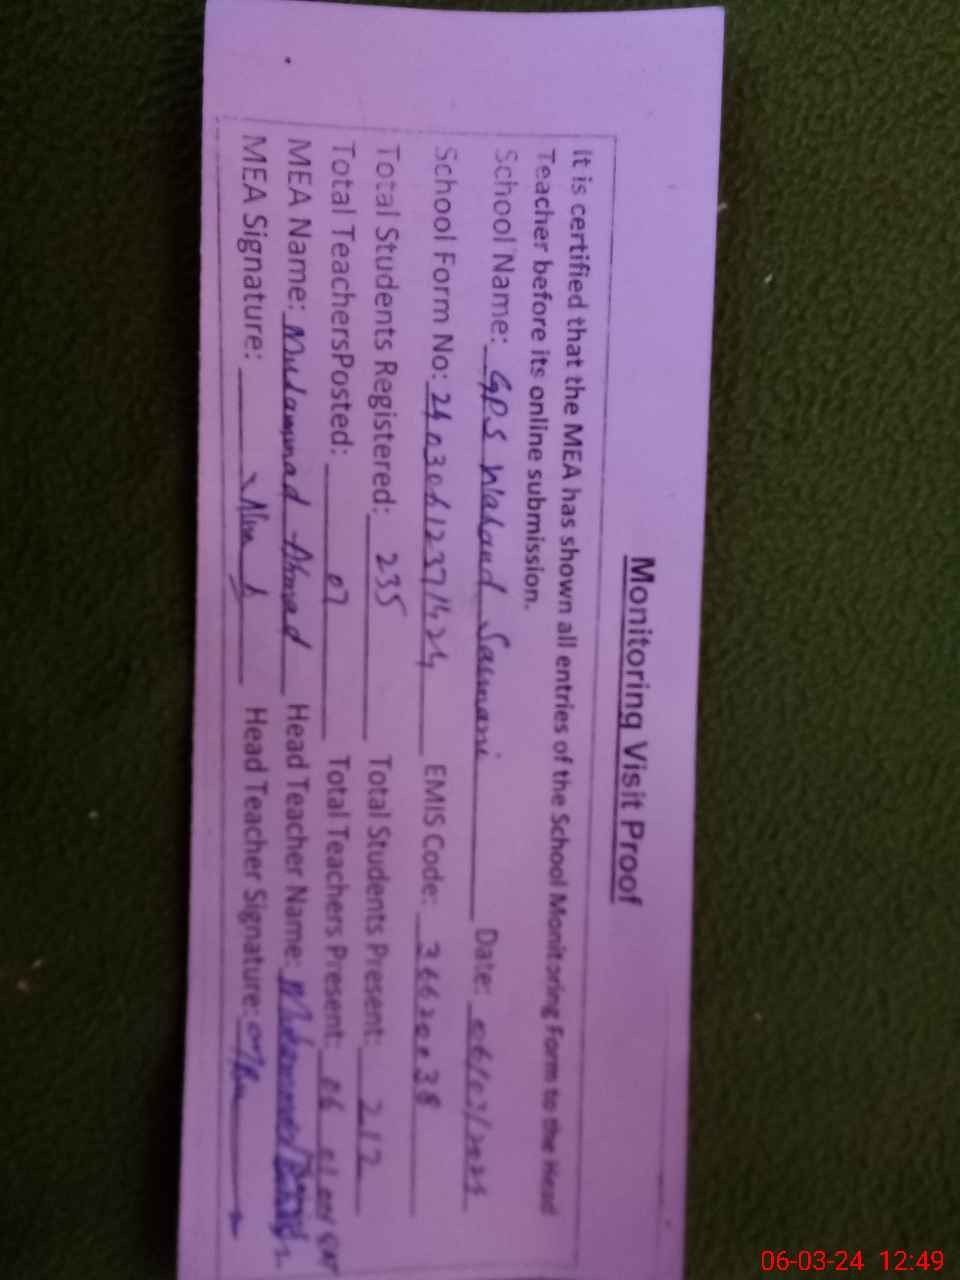 Monitoring Visit Proof
It is certified that the MEA has shown all entries of the School Monitoring Form to the Head
Teacher before its online submission.
School Name: GPS Date: 06/03/2024
School Form No: EMIS Code:
Total Students Registered: 235 Total Students Present: 212
Total TeachersPosted: 07 Total Teachers Present: 06
MEA Name: Muhammad Ahmad Head Teacher Name: Muhammad
MEA Signature: Head Teacher Signature:
06-03-24 12:49